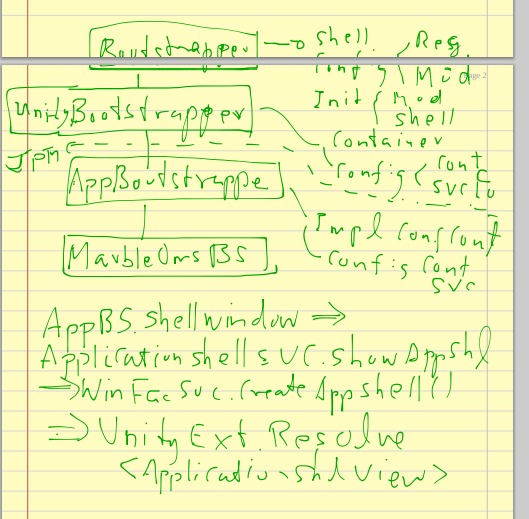 Bootstrapper → shell { Reg.
Config { Mod
Page 2
Init { Mod
shell
UnityBootstrapper
Container
JPMC
Config { Cont
SVC Lo
AppBootstrappe
Impl Conf Cont
Config Cont
SVC
MarbleOmsBS
AppBS.shellwindow ⇒
ApplicationshellSVC.showAppshl
⇒ WinFacSvc.CreateAppshell()
⇒ UnityExt.Resolve
<ApplicationshlView>